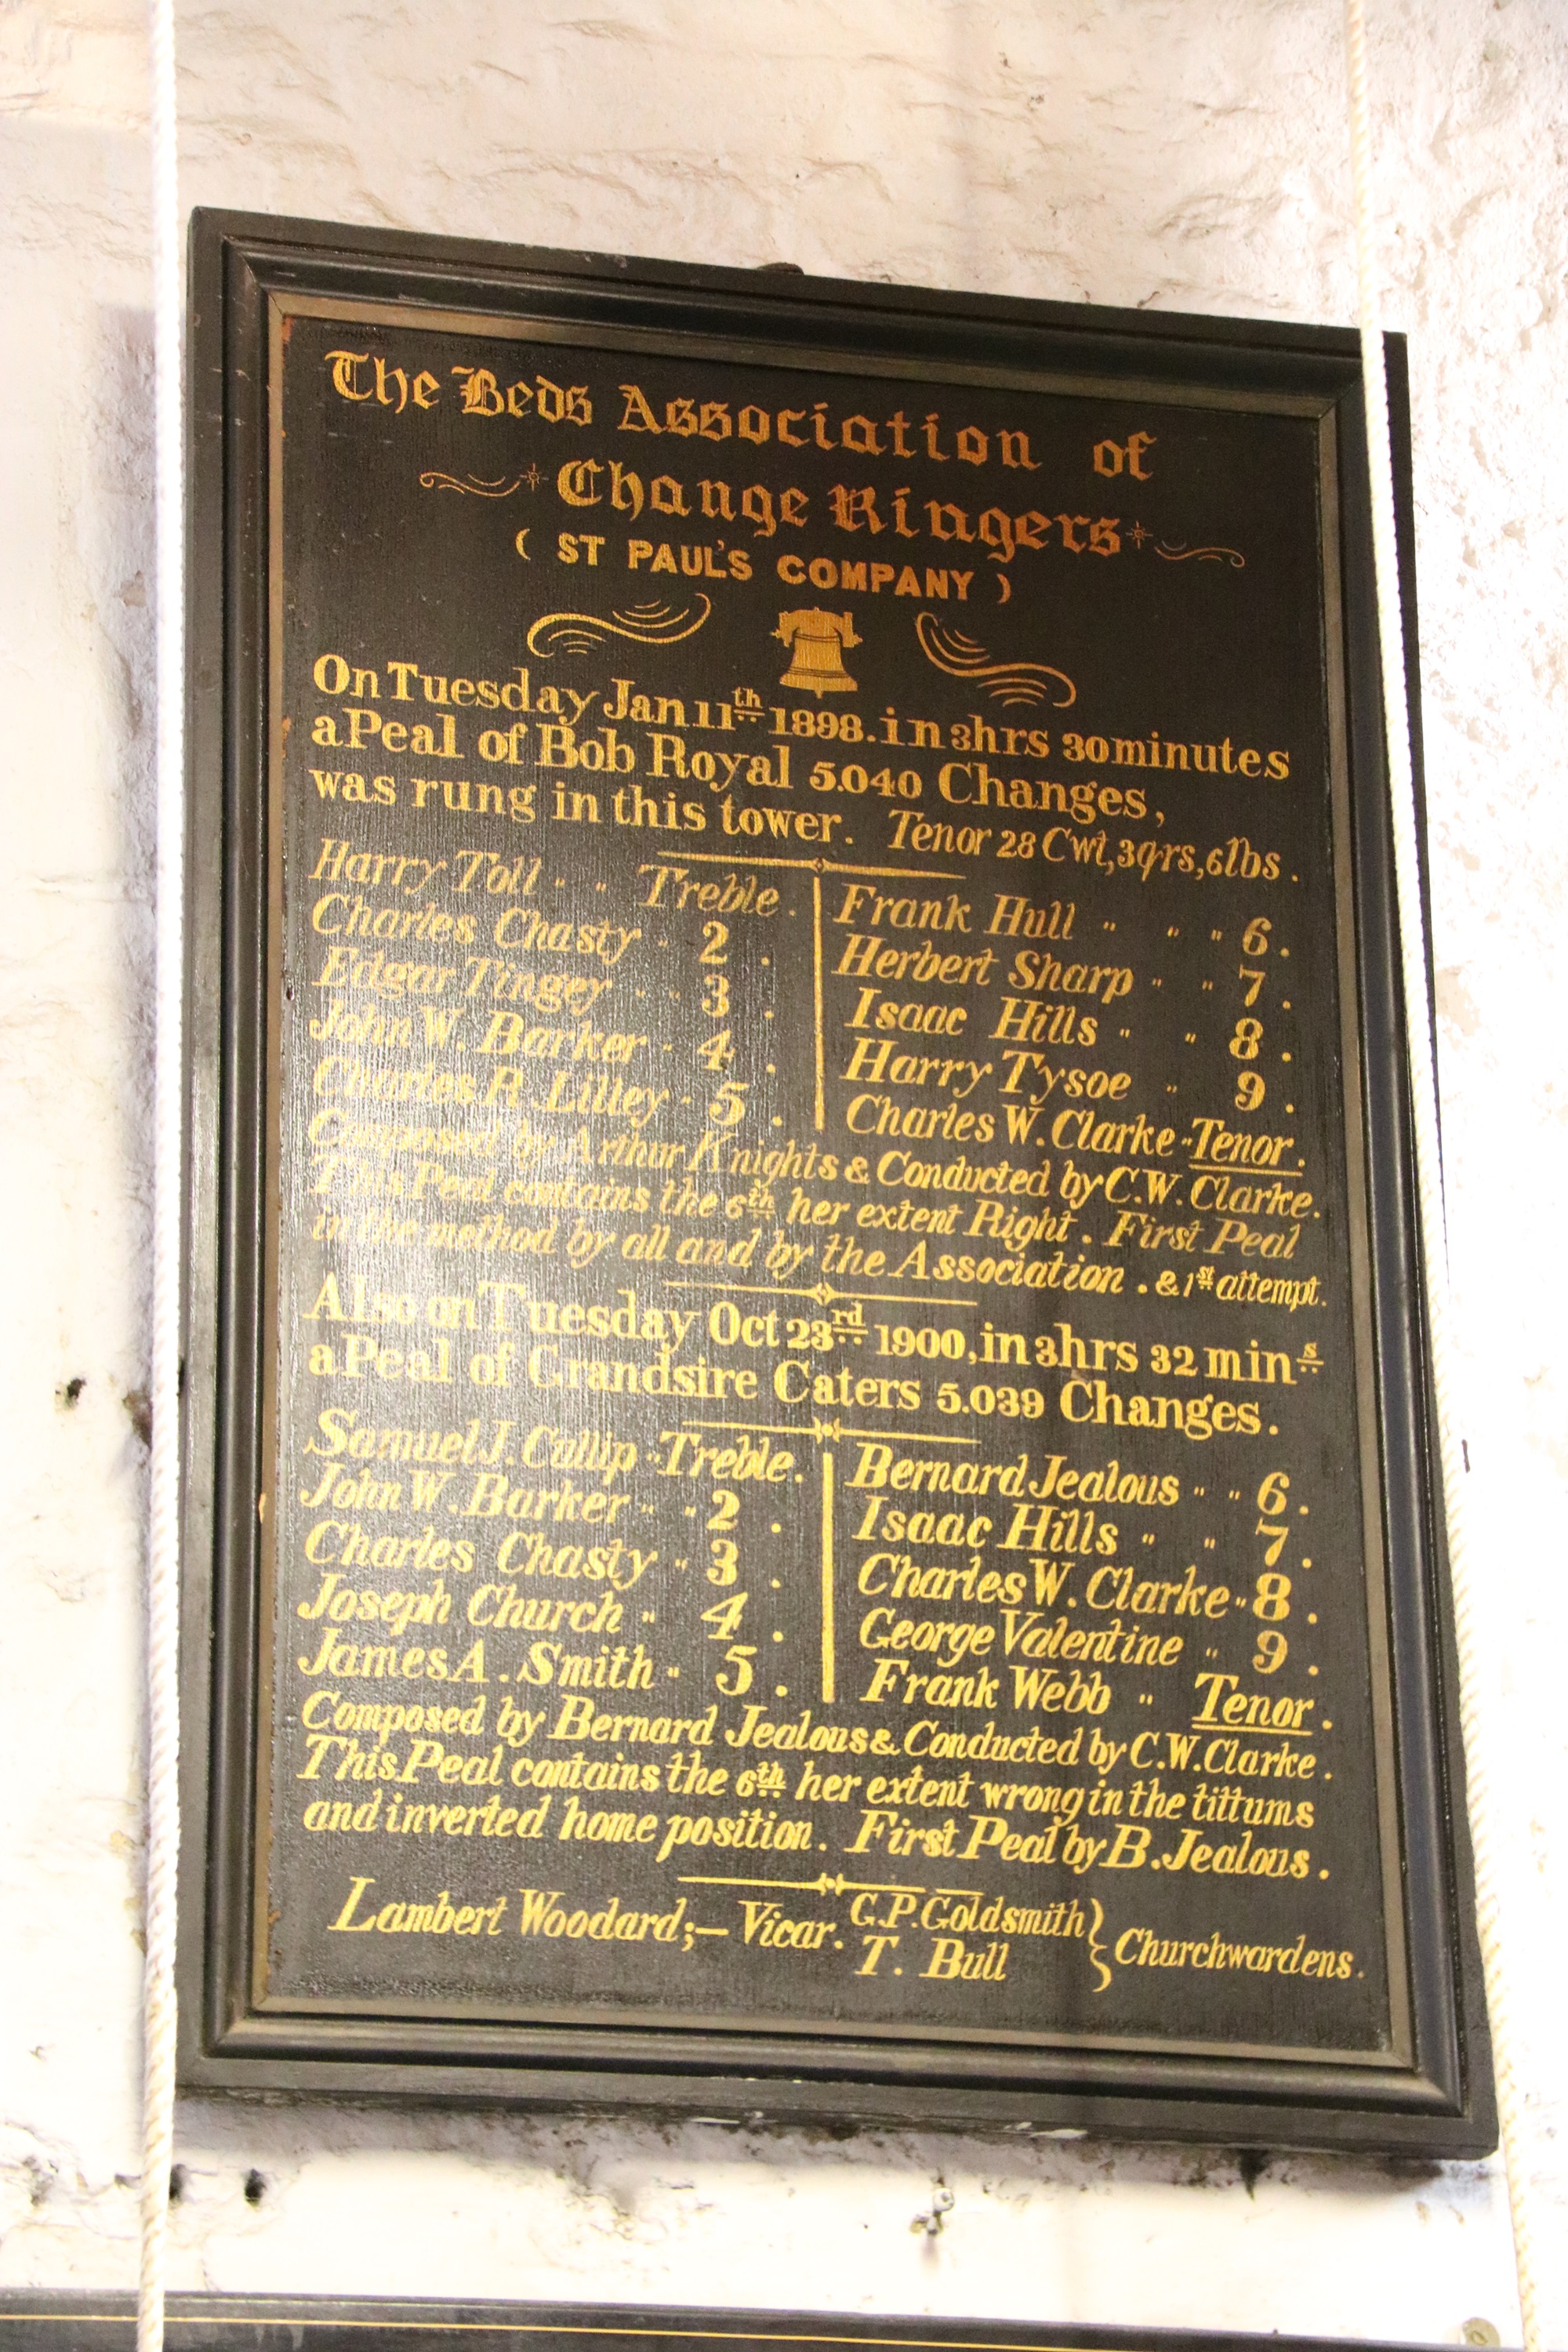 The Beds Association of
Change Ringers
( ST PAUL'S COMPANY )
On Tuesday Jan 11th 1898. in 3hrs 30 minutes
a Peal of Bob Royal 5.040 Changes,
was rung in this tower. Tenor 28 Cwt, 3qrs, 6lbs.
Harry Toll " " Treble. Frank Hull " " " 6.
Charles Chasty " 2. Herbert Sharp " " 7.
Edgar Tingey " " 3. Isaac Hills " " 8.
John W. Barker " 4. Harry Tysoe " 9.
Charles R. Lilley " 5. Charles W. Clarke " Tenor.
Composed by Arthur Knights & Conducted by C.W. Clarke.
This Peal contains the 6th her extent Right. First Peal
in the method by all and by the Association. & 1st attempt.
Also on Tuesday Oct 23rd 1900, in 3hrs 32 mins
a Peal of Grandsire Caters 5.039 Changes.
Samuel J. Cullip " Treble. Bernard Jealous " " 6.
John W. Barker " " 2. Isaac Hills " " 7.
Charles Chasty " 3. Charles W. Clarke " 8.
Joseph Church " 4. George Valentine " 9.
James A. Smith " 5. Frank Webb " Tenor.
Composed by Bernard Jealous & Conducted by C.W. Clarke.
This Peal contains the 6th her extent wrong in the tittums
and inverted home position. First Peal by B. Jealous.
Lambert Woodard;— Vicar. G.P. Goldsmith } Churchwardens.
T. Bull